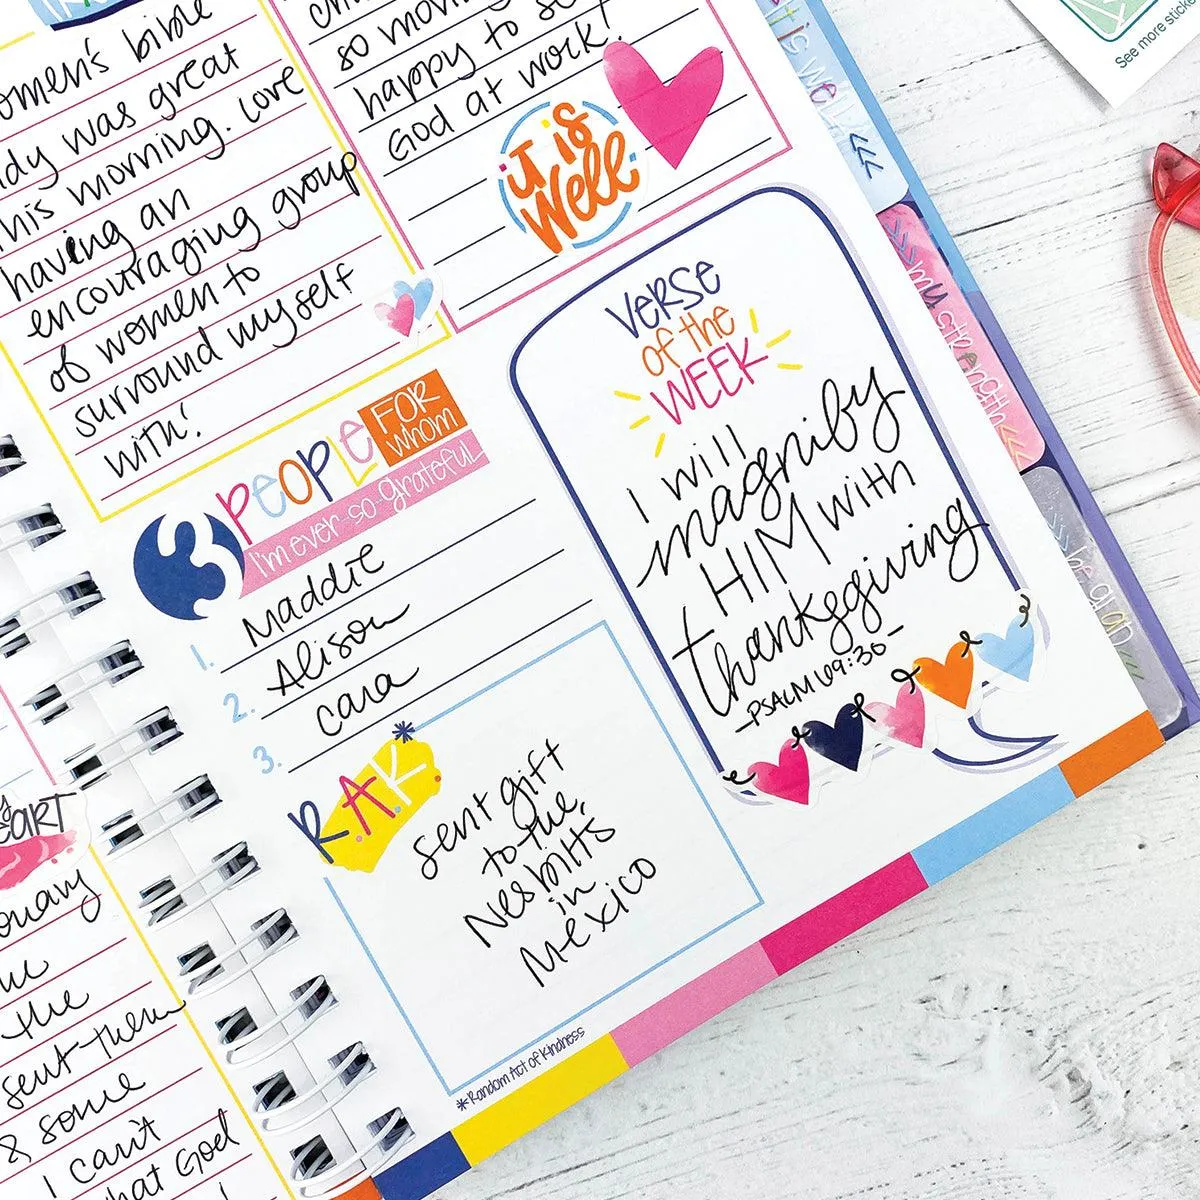 omen's bible
dy was great
his morning. Love
having an
encouraging group
of women to
surround myself
with!
so
happy to
God at work!
it is
well
VERSE
of the
WEEK
I will
magnifby
HIM with
thanksgiving
-PSALM 69:30-
3 PEOPLE FOR
whom
I'm ever-so-grateful
1. Maddie
2. Alison
3. Cara
R.A.K.*
sent gift
to the
Nesbitts
in
Mexico
*Random Act of Kindness
it is well
my strength
See more
ART
the
sent them
& some
I can't
hat God